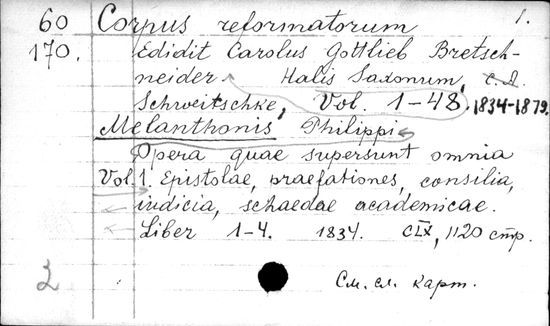 60 Corpus reformatorum 1.
170. Edidit Carolus Gottlieb Bretsch-
neider. Halis Saxonum,
Schweitschke, Vol. 1-48. 1834-1879.
Melanthonis Philippi
Opera quae supersunt omnia
Vol. 1. Epistolae, praefationes, consilia,
iudicia, schaedae academicae.
Liber 1-4. 1834. CLX, 1120 стр.
2 См. сл. карт.